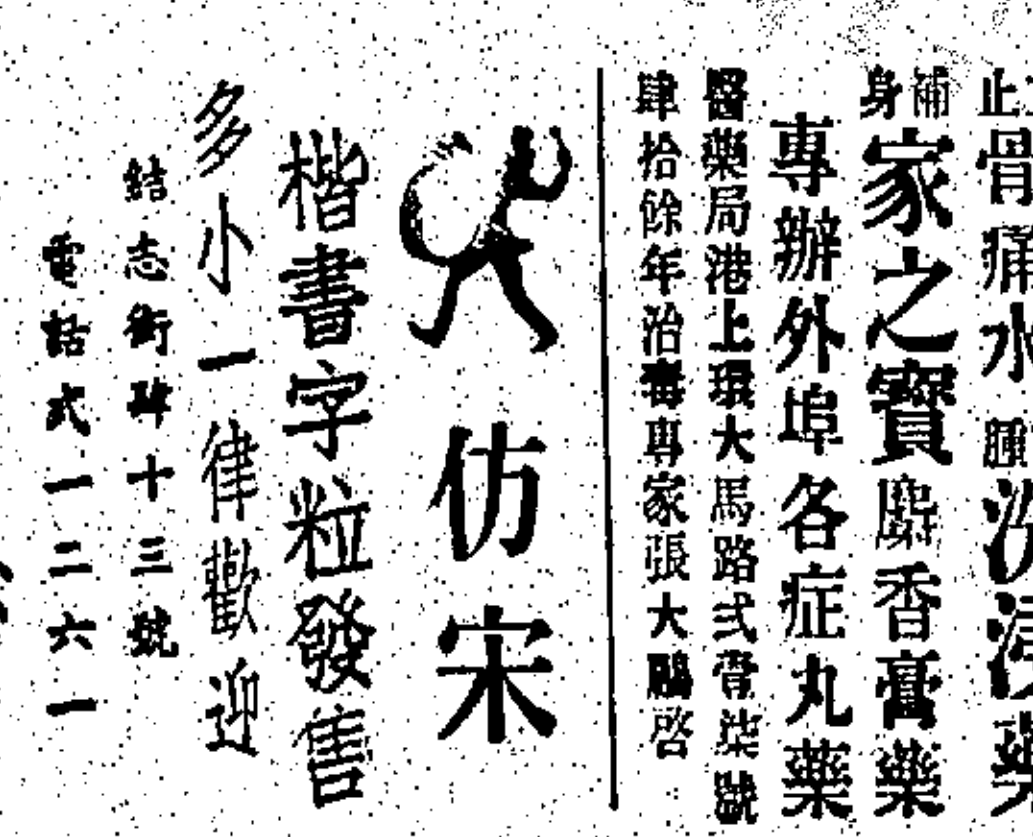 止骨痛水腫
補身家之寶麝香膏藥
專辦外埠各症丸藥
醫藥局港上環大馬路弍百柒號
肆拾餘年治毒專家張大鵬啓
仿宋
楷書字粒發售
多小一律歡迎
結志街碑十三號
電話弍一二六一